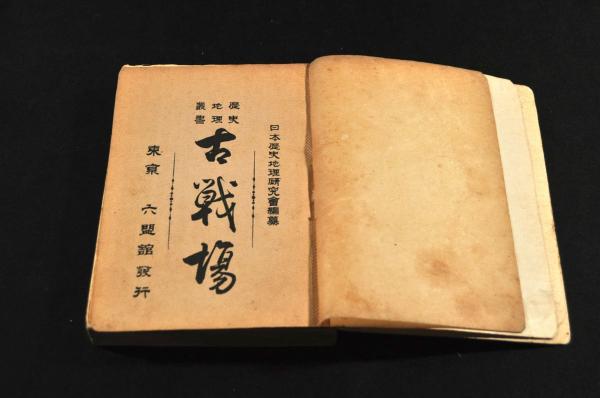 日本歴史地理研究會編纂
歴史
地理
叢書
古戰場
東京 六盟館發行